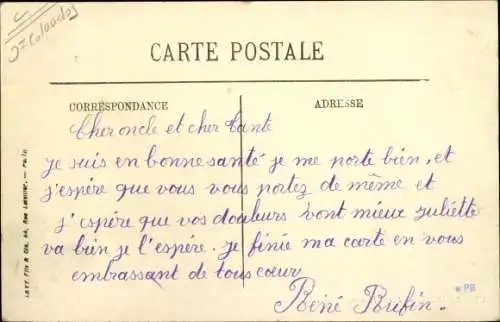 Calvados
CARTE POSTALE
CORRESPONDANCE
ADRESSE
Cher oncle et cher tante
je suis en bonne santé je me porte bien, et
j'espère que vous vous portez de même et
j'espère que vos douleurs vont mieux juliette
va bien je l'espère. je finie ma carte en vous
embrassant de tous coeur
René Rufin.
LEVY Fils & Cie, 44, Rue Letellier. — Paris
PB